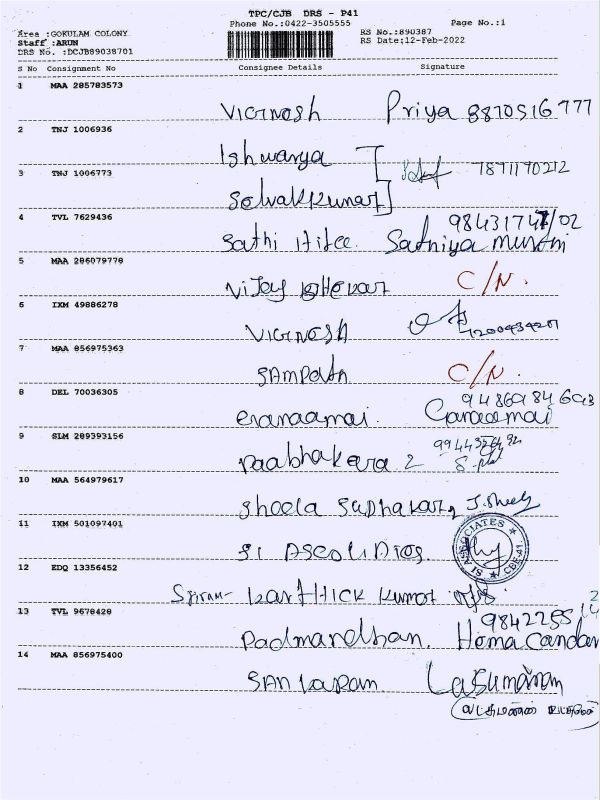 TPC/CJB DRS - P41
Phone No.:0422-3505555
Page No.:1
Area :GOKULAM COLONY
Staff :ARUN
DRS No. :DCJB89038701
RS No.:890387
RS Date:12-Feb-2022
S No Consignment No Consignee Details Signature
1 MAA 285783573
Vignesh Priya 8870516777
2 TNJ 1006936
Ishwarya
7871170212
3 TNJ 1006773
Selvakkumar
4 TVL 7629436
Sathi
Sathiya Murthi
5 MAA 286079778
Vijay Shekar C/N.
6 IXM 49886278
Vignesh
7 MAA 856975363
Sampath C/N.
8 DEL 70036305
9 SLM 289393156
Paabhakara 2
10 MAA 564979617
Sheela Sudhakar J. Sheely
11 IXM 501097401
SI ASSOCIATES
CBE-41.
12 EDQ 13356452
Sriram- Karthick Kumar
13 TVL 9678428
Padmandhan. Hema Candan
14 MAA 856975400
Sankaran.